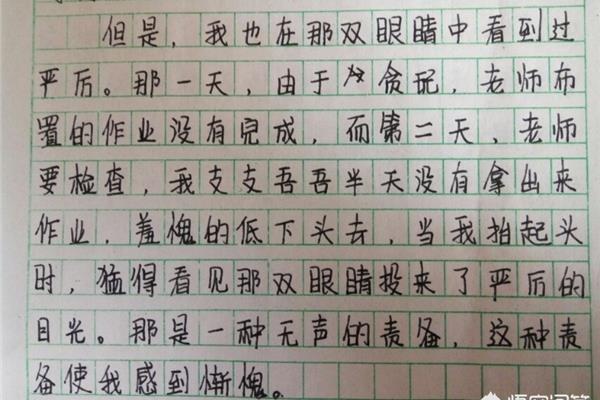 但是，我也在那双眼睛中看到过
严厉。那一天，由于贪玩，老师布
置的作业没有完成，而第二天、老师
要检查，我支支吾吾半天没有拿出来
作业，羞愧的低下头去，当我抬起头
时，猛得看见那双眼睛投来了严厉的
目光。那是一种无声的责备，这种责
备使我感到惭愧。
悟空问答